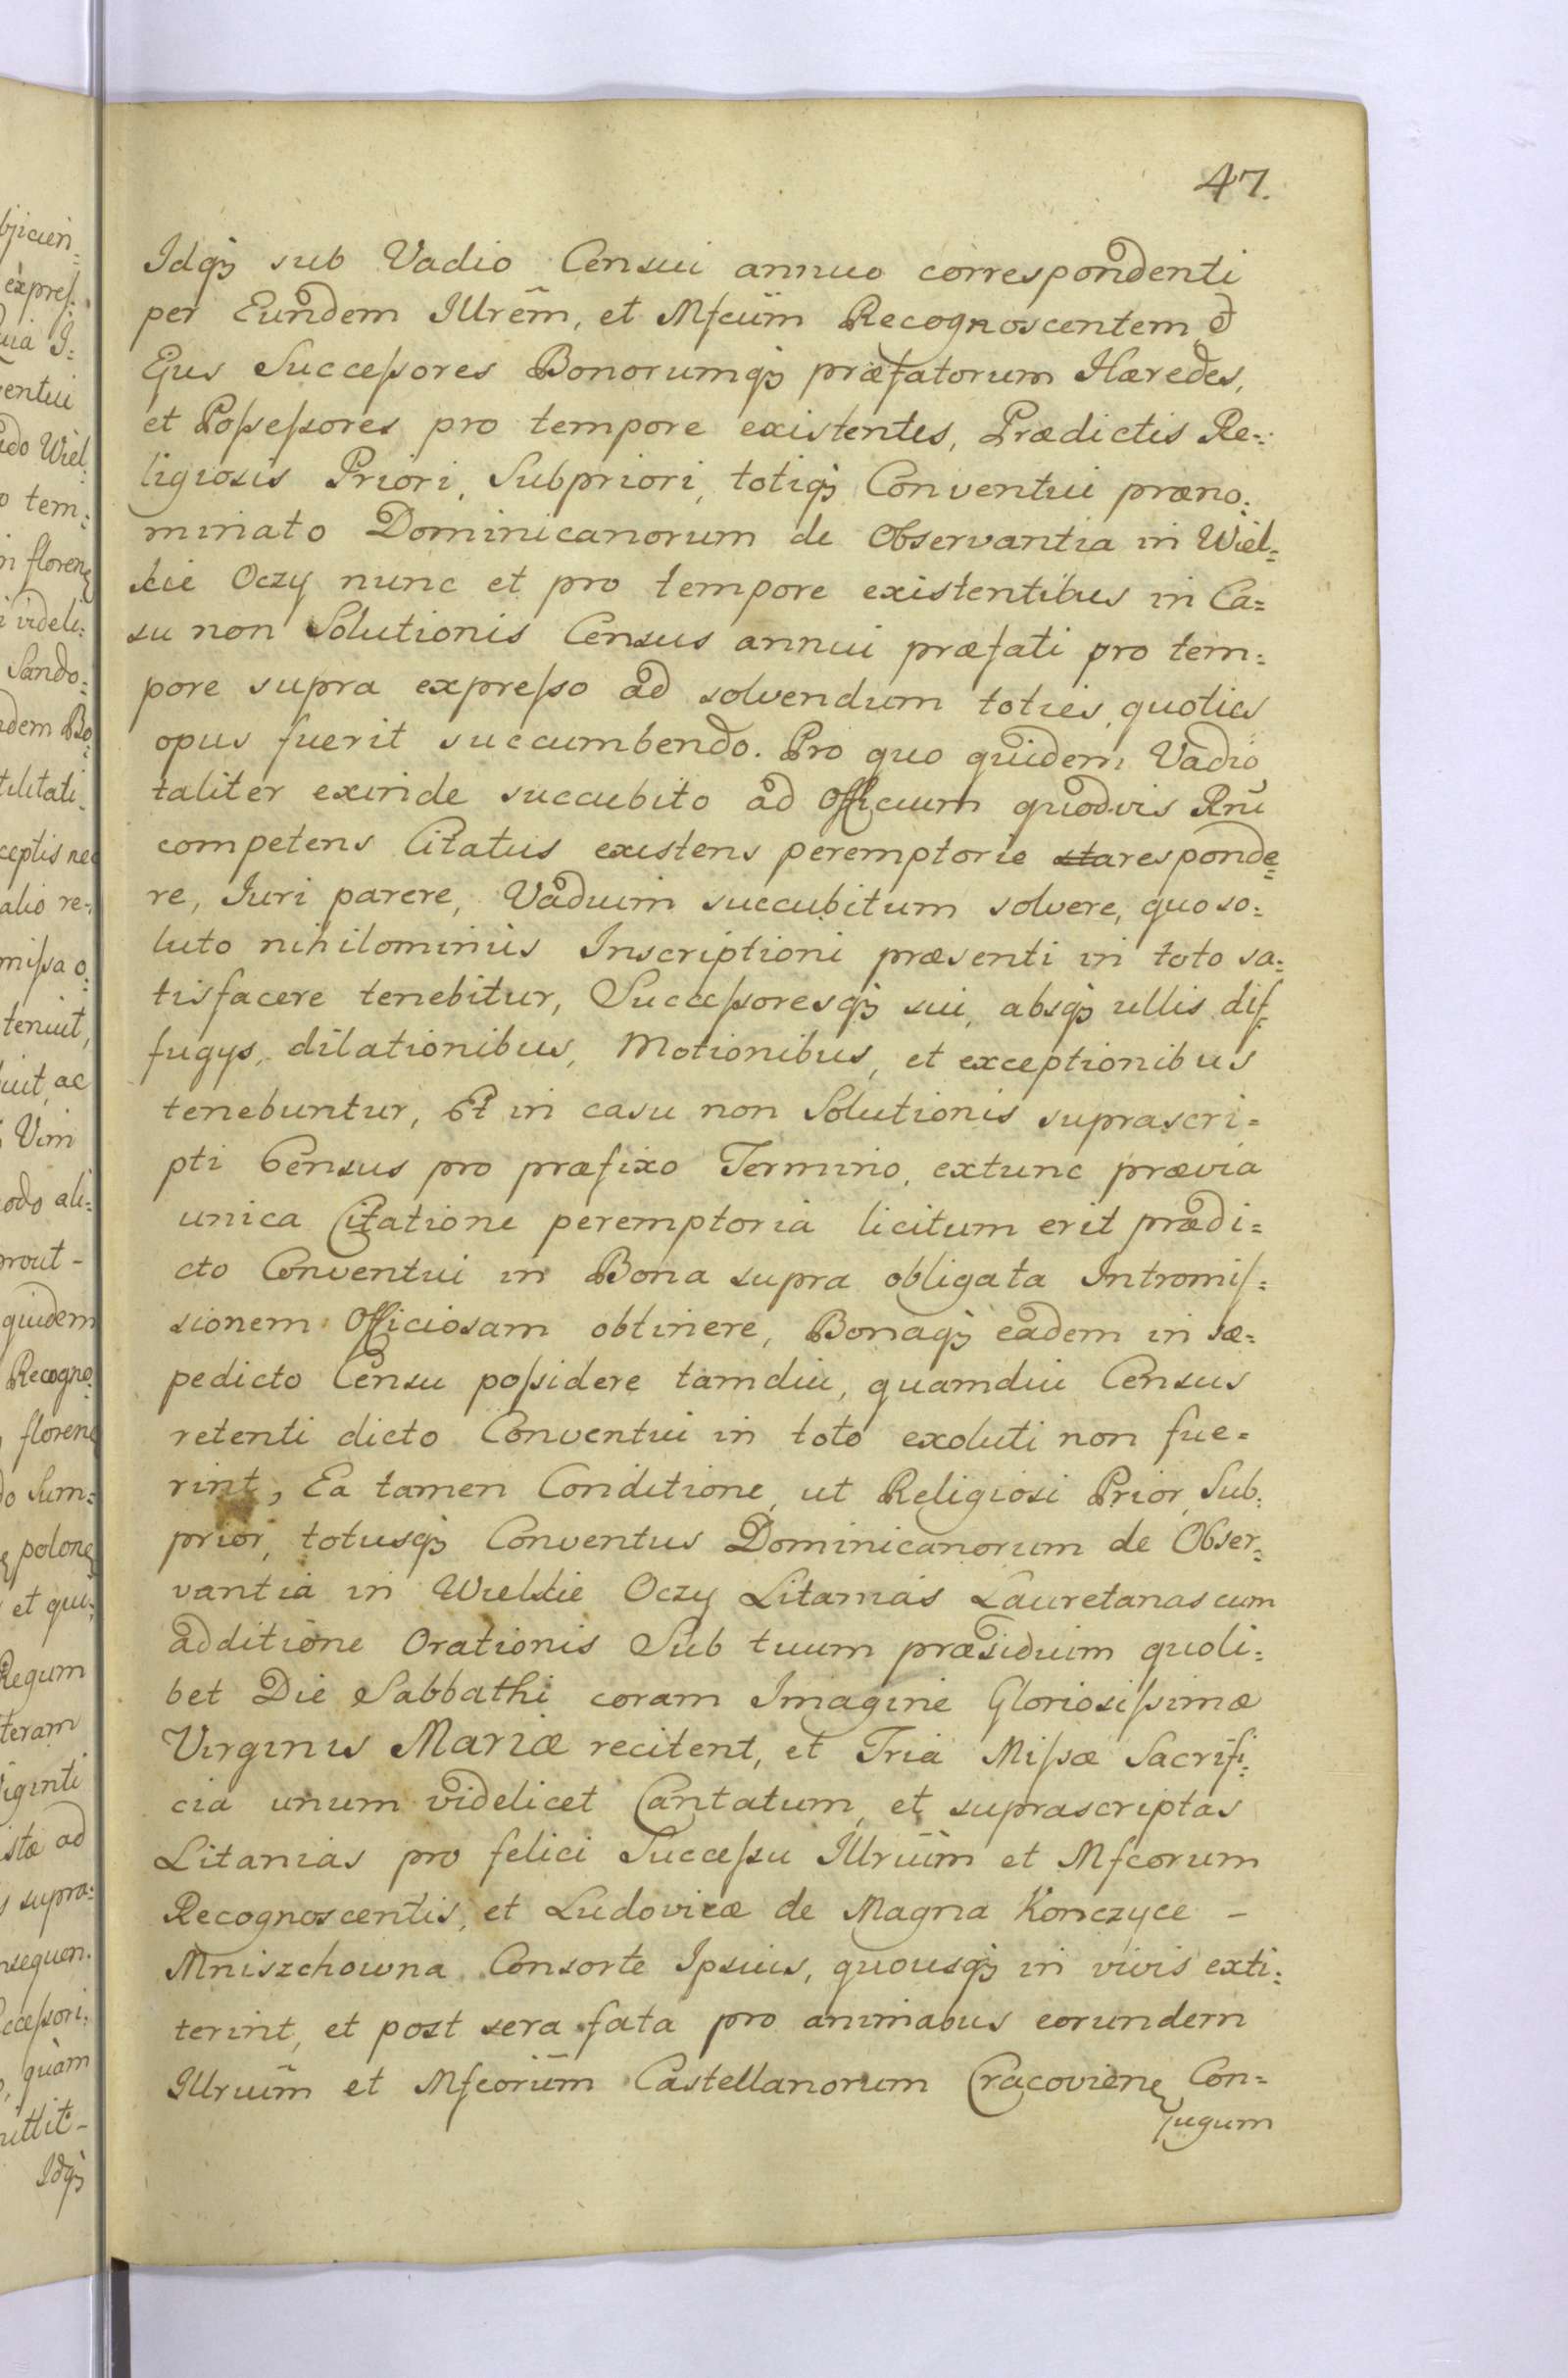 47.
Idqꝫ sub Vadio Censui annuo correspondenti
per Eundem Illrem̃, et Mfcum̃ Recognoscentem, et
Ejus Succeſsores Bonorumqꝫ præfatorum Hæredes,
et Poſseſsores pro tempore existentes, Prædictis Re=
ligiosis Priori, Subpriori, totiqꝫ Conventui præno=
minato Dominicanorum de Observantia in Wiel=
kie Oczy nunc et pro tempore existentibus in Ca=
su non Solutionis Census annui præfati pro tem=
pore supra expreſso ad solvendum toties, quoties
opus fuerit succumbendo. Pro quo quidem Vadio
taliter exinde succubito ad Officium quodvis Rnũ
competens Citatus existens peremptorie sta responde=
re, Iuri parere, Vadium succubitum solvere, quo so=
luto nihilominus Inscriptioni præsenti in toto sa=
tisfacere tenebitur, Succeſsoresqꝫ sui, absqꝫ ullis dif=
fugys, dilationibus, Motionibus, et exceptionibus
tenebuntur, Et in casu non Solutionis suprascri=
pti Census pro præfixo Termino, extunc prævia
unica Citatione peremptoria licitum erit prædi=
cto Conventui in Bona supra obligata Intromiſ=
sionem Officiosam obtinere, Bonaqꝫ eadem in sæ=
pedicto Censu poſsidere tamdiu, quamdiu Census
retenti dicto Conventui in toto exoluti non fue=
rint, Ea tamen Conditione, ut Religiosi Prior, Sub=
prior, totusqꝫ Conventus Dominicanorum de Obser=
vantia in Wielkie Oczy Litanias Lauretanas cum
additione Orationis Sub tuum præsidium quoli=
bet Die Sabbathi coram Imagine Gloriosiſsimæ
Virginis Mariæ recitent, et Tria Miſsæ Sacrifi=
cia unum videlicet Cantatum, et suprascriptas
Litanias pro felici Succeſsu Illrium̃ et Mfcorum
Recognoscentis, et Ludovicæ de Magna Konczyce -
Mniszchowna Consorte Ipsius, quousqꝫ in vivis exti=
terint, et post sera fata pro animabus eorundem
Illrium̃ et Mfcorum̃ Castellanorum Cracovienꝫ Con=
jugum